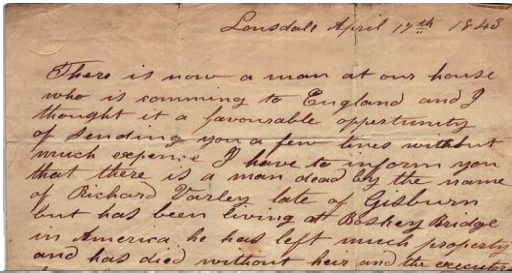 Lonsdale April 17th 1843
There is now a man at our house
who is comming to England and I
thought it a favourable oppertunity
of sending you a few lines without
much expence I have to inform you
that there is a man dead by the name
of Richard Varley late of Gisburn
but has been living at Boskey Bridge
in America he has left much property
and has died without heir and the executor